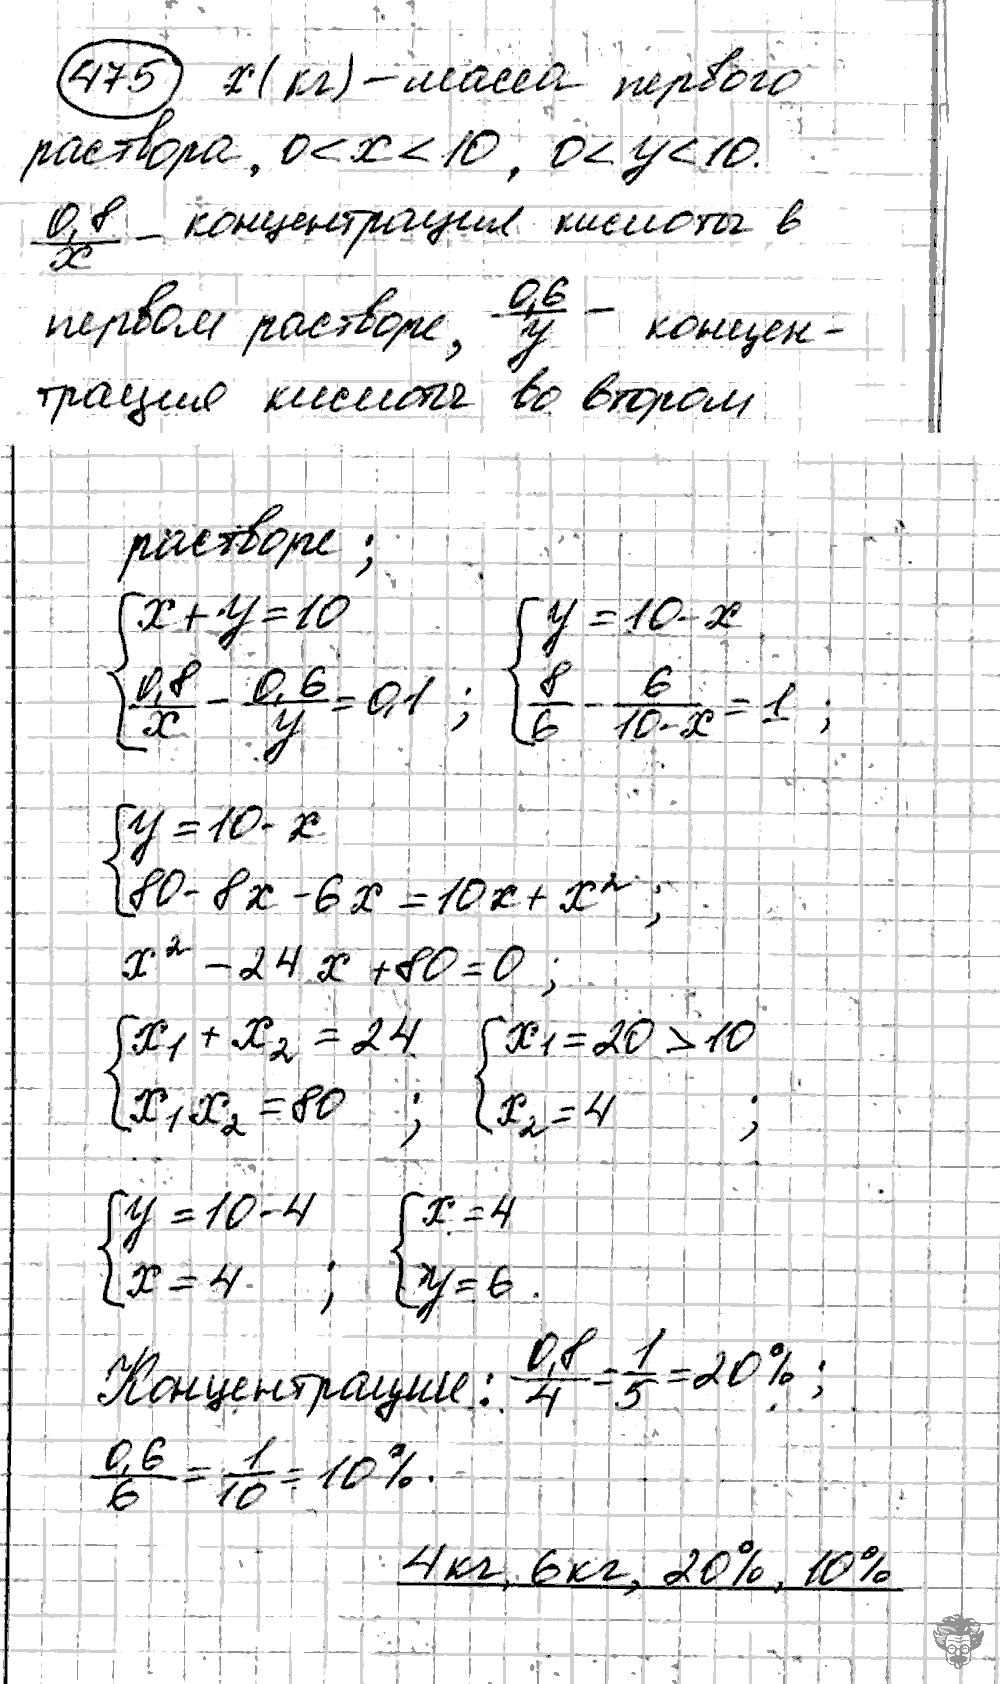 475 x(кг) – масса первого
раствора, 0<x<10, 0<y<10.
0,8/x – концентрация кислоты в
первом растворе, 0,6/y – концен-
трация кислоты во втором
растворе;
{x+y=10 {y=10-x
{0,8/x - 0,6/y = 0,1; {8/6 - 6/(10-x) = 1;
{y=10-x
{80-8x-6x=10x+x²;
x²-24x+80=0;
{x₁+x₂=24 {x₁=20>10
{x₁x₂=80; {x₂=4;
{y=10-4 {x=4
{x=4; {y=6.
Концентрации: 0,8/4 = 1/5 = 20%;
0,6/6 = 1/10 = 10%.
4кг, 6кг, 20%, 10%